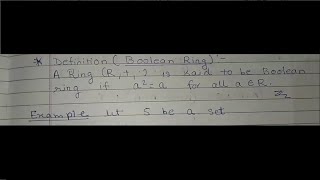 * Definition ( Boolean Ring) :-
A Ring (R, +, ) is said to be Boolean
ring if a² = a for all a ∈ R.
Example Let S be a set